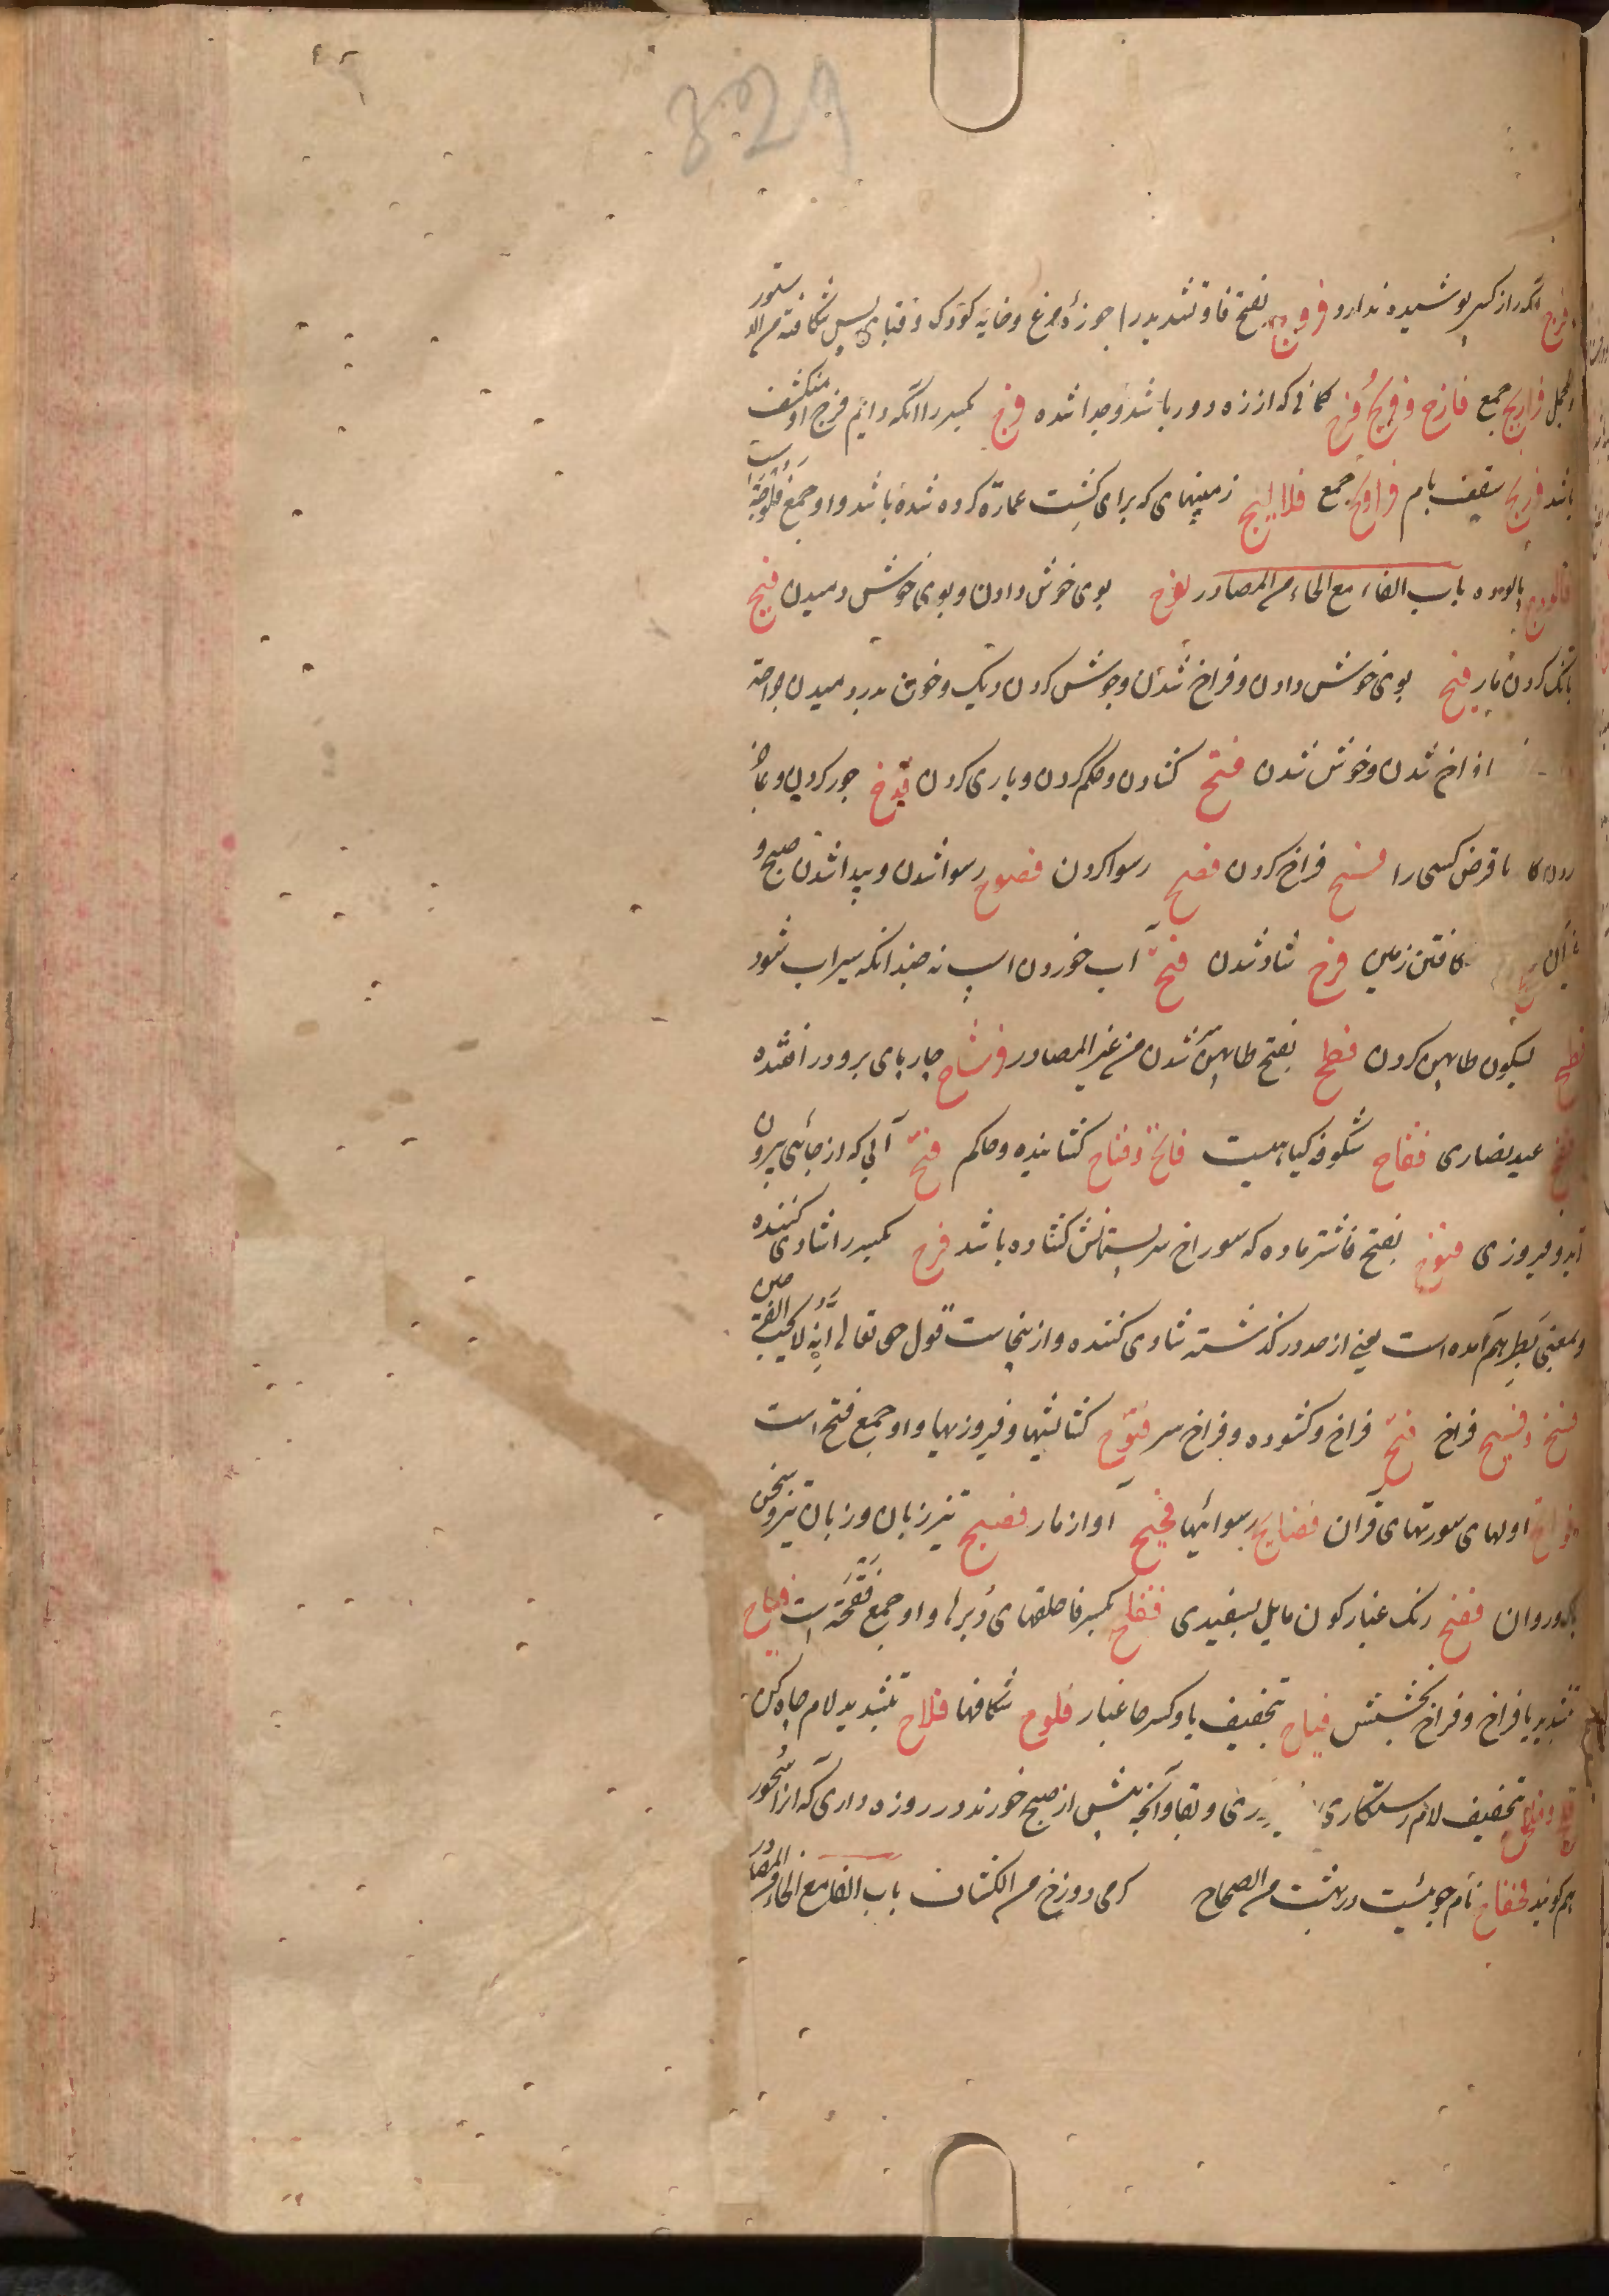 329
فرج آنکه راز کسی پوشیده ندارد فروج بفتح فا و تشدید را جوزهٔ مرغ و خایه کودک و قبای پس شکافته من الدستور
والمجمل فراریج جمع فارج و فریج و فرج کمانی که از زه دور باشد و جدا شده فرج بکسر را آنکه دایم فرج او منکشف
باشد سقف بام جمع فلالیج زمینهای که برای کشت عمارة کرده شده باشد و او جمع فلوجة است
فالودج پالوده باب الفاء مع الحاء من المصادر فوح بوی خوش دادن و بوی خوش دمیدن فیح
بانک کردن مار فیح بوی خوش دادن و فراخ شدن و جوش کردن دیک و خون بدر دمیدن جراحة
فراخ شدن و خوش شدن فتح کشادن و حکم کردن و یاری کردن فدح جور کردن و
قرض کسی را فسح فراخ کردن فضح رسوا کردن فضوح رسوا شدن و پیدا شدن صبح و
شکافتن زمین فرح شاد شدن فتح آب خوردن اسپ نه چندانکه سیراب شود
فطح بسکون طا پهن کردن فطح بفتح طا پهن شدن من غیر المصادر فرشاح چارپای بر و در افتنده
فصح عید نصاری فقاح شکوفه کیاهیست فاتح و فتاح کشاینده و حاکم فتح آبی که از جائی بیرون
آید و فیروزی فتوح بفتح فا شتر ماده که سوراخ سر پستانش کشاده باشد فرح بکسر را شادی کننده
و بمعنی بطر هم آمده است یعنی از حد در کذشته شادی کننده و ازینجاست قول حق تعالی انه لا یحب الفرحین
فسح و فسیح فراخ فتح فراخ و کشوده و فراخ سر فتوح کشایشها و فیروزیها و او جمع فتح است
فواتح اولهای سورتهای قرآن فضایح رسوائیها فحیح آواز مار فصیح تیز زبان و زبان تیز و سخن
پاک و روان فضح رنک غبار کون مایل بسفیدی فقاح بکسر فا حلقهای دبرها و او جمع فقحة است فیاح
بتشدید یا فراخ و فراخ بخشش فیاح بتخفیف یا و کسر حا غبار فلوح شکافها فلاح بتشدید لام چاه کن
فلاح و فلح بتخفیف لام رستکاری و بقا و آنچه پیش از صبح خورند در روزه داری که آنرا سحور
هم کویند فحفاح نام جویئست در بهشت من الصحاح کرمی دوزخ من الکشاف باب الفا مع الخاء من المصادر